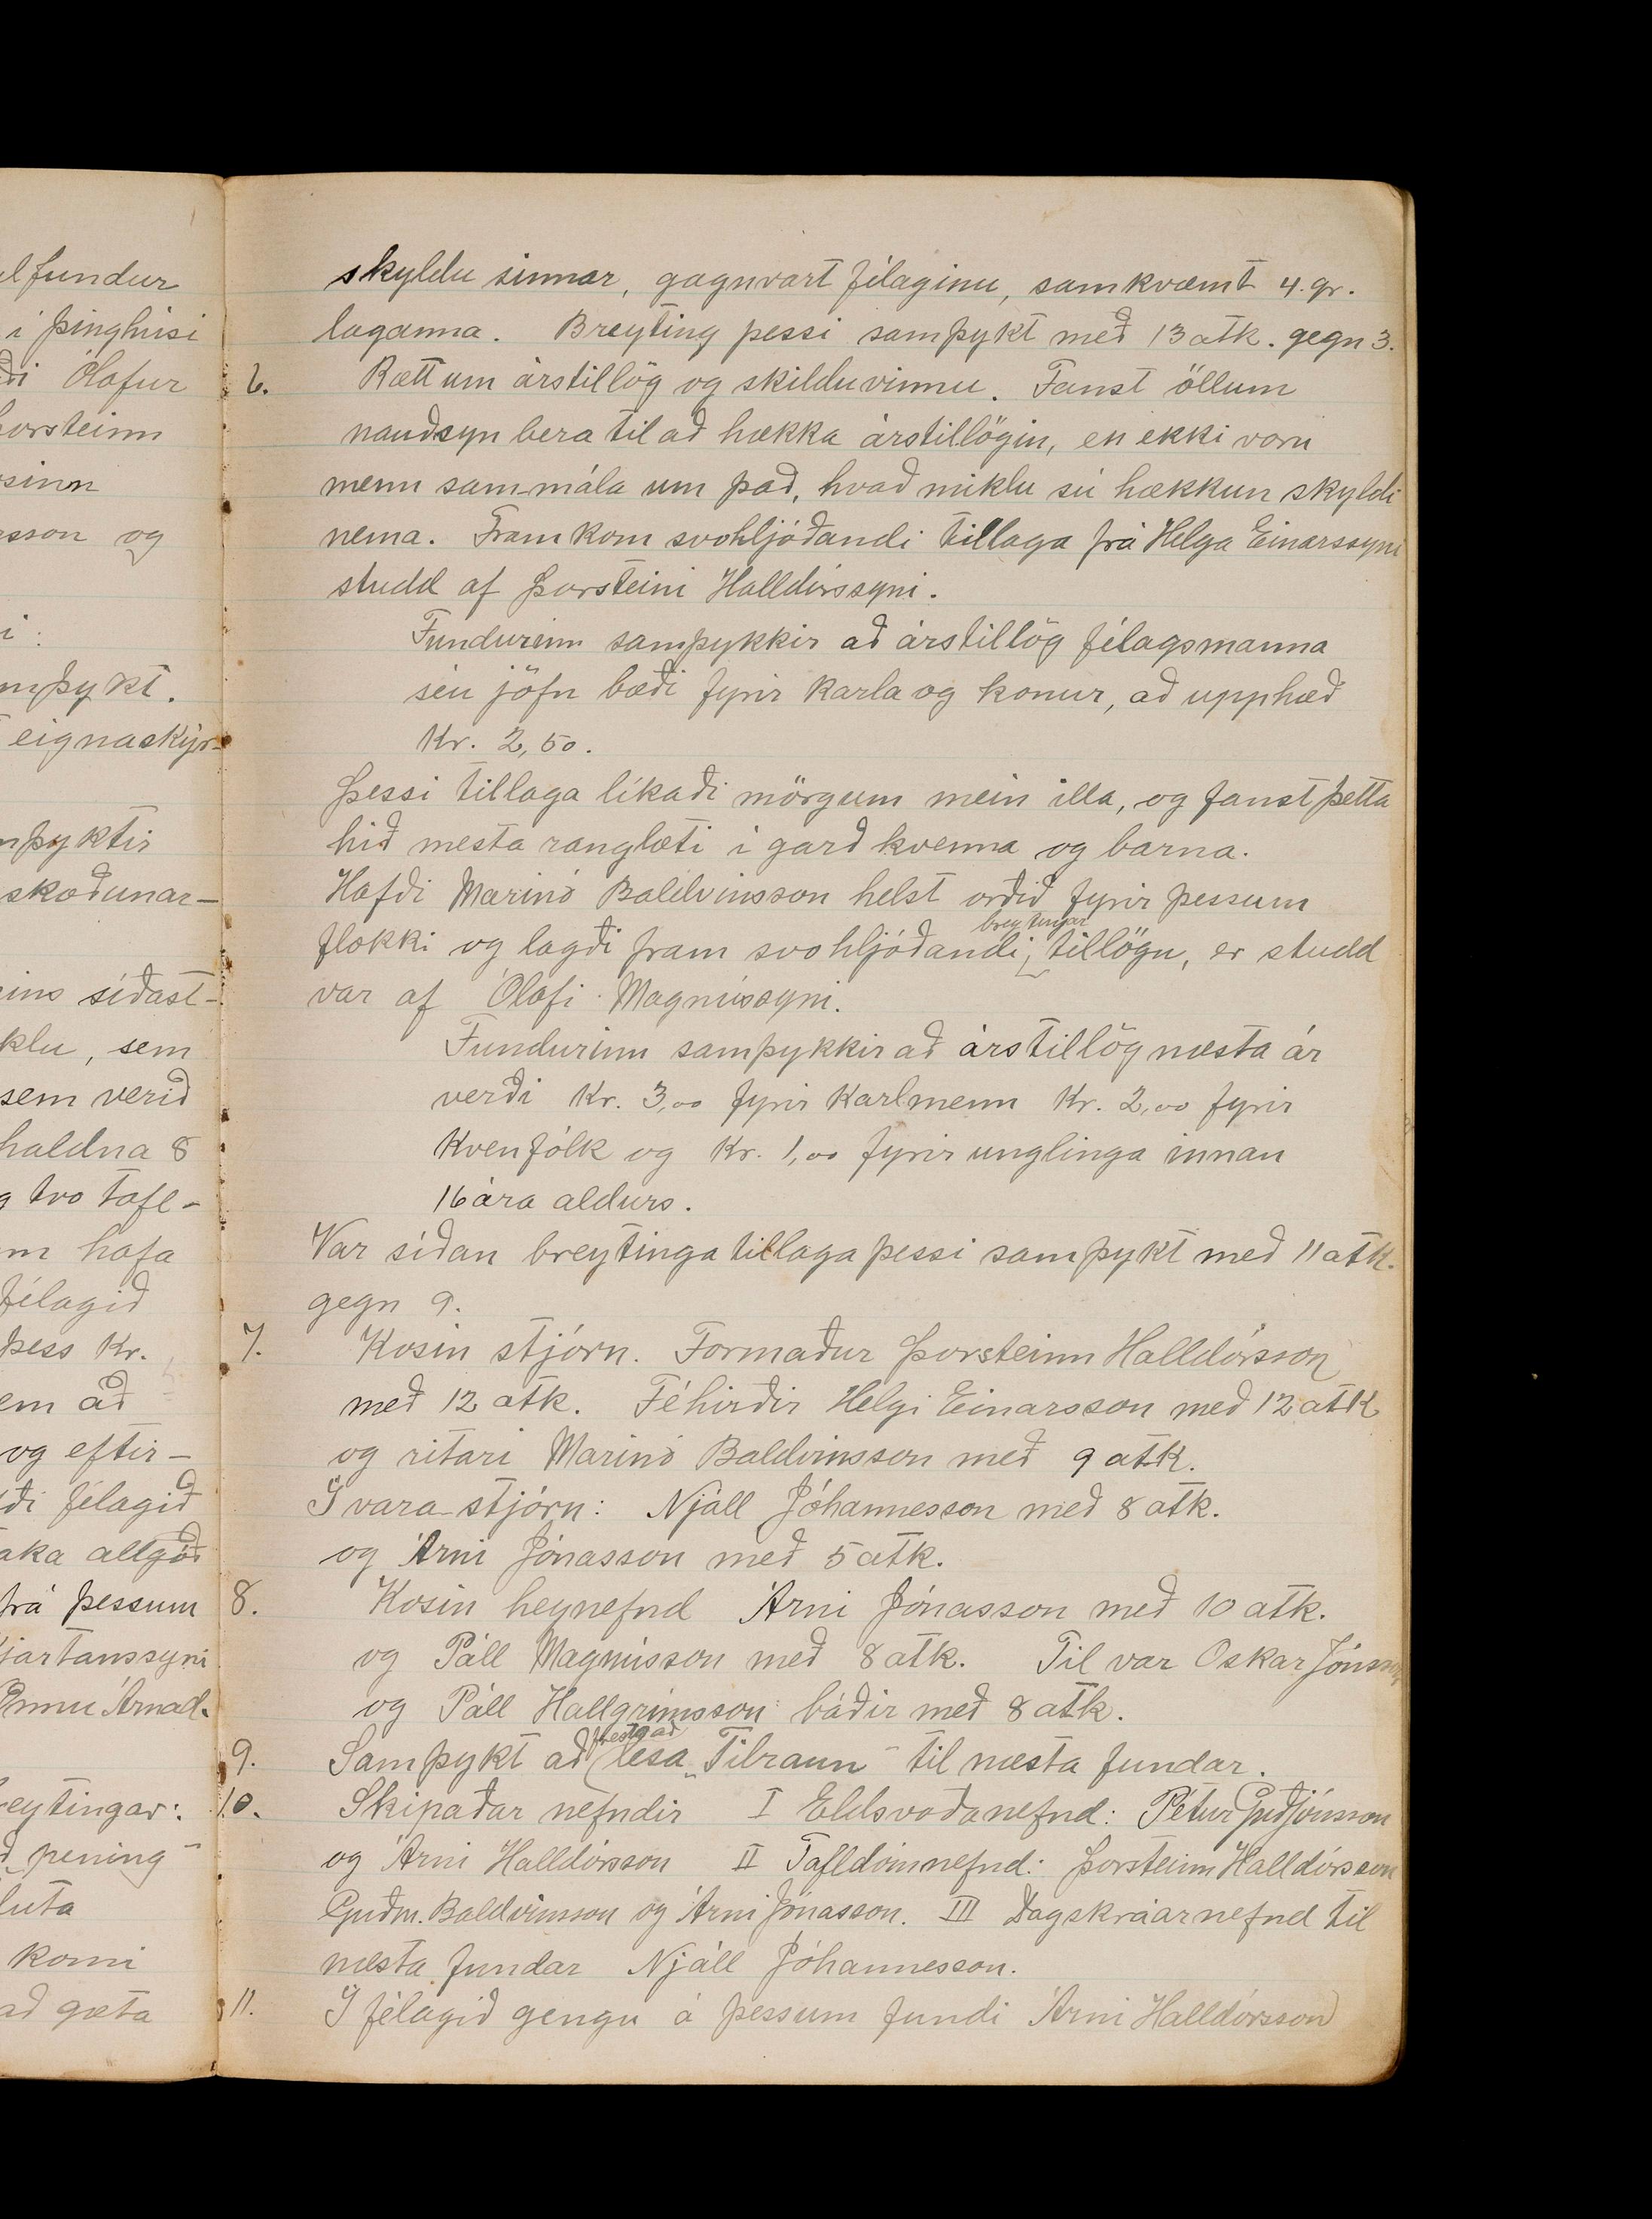 lfundur
í þinghúsi
ði Ólafur
orsteinn
sinn
sson og
i:
mþykt.
eignaskýr-
mþyktir
skoðunar-
ins síðast-
klu, sem
sem verið
haldna 8
g tvo tafl-
m hafa
félagið
þess kr.
em að
og eftir-
ði félagið
aka allgóð
frá þessum
jartanssyni
Önnu Árnad.
eytingar:
pening
luta
komi
að gæta
skyldu sinnar, gagnvart félaginu, samkvæmt 4. gr.
laganna. Breyting þessi samþykt með 13 atk. gegn 3.
6. Rætt um árstillög og skilduvinnu. Fanst öllum
nauðsyn bera til að hækka árstillögin, en ekki voru
menn sammála um það, hvað miklu sú hækkun skyldi
nema. Fram kom svohljóðandi tillaga frá Helga Einarssyni
studd af Þorsteini Halldórssyni.
Fundurinn samþykkir að árstillög félagsmanna
séu jöfn bæði fyrir karla og konur, að upphæð
Kr. 2,50.
Þessi tillaga líkaði mörgum mein illa, og fanst þetta
hið mesta ranglæti í garð kvenna og barna.
Hafði Marinó Baldvinsson helst orðið fyrir þessum
flokki og lagði fram svohljóðandi breytingar tillögu, er studd
var af Ólafi Magnússyni.
Fundurinn samþykkir að árstillög næsta ár
verði Kr. 3,00 fyrir karlmenn Kr. 2,00 fyrir
kvenfólk og Kr. 1,00 fyrir unglinga innan
16 ára aldurs.
Var síðan breytingatillaga þessi samþykt með 11 atk.
gegn 9.
7. Kosin stjórn. Formaður Þorsteinn Halldórsson
með 12 atk. Féhirðir Helgi Einarsson með 12 atk
og ritari Marinó Baldvinsson með 9 atk.
Í vara-stjórn: Njáll Jóhannesson með 8 atk.
og Árni Jónasson með 5 atk.
8. Kosin heynefnd Árni Jónasson með 10 atk.
og Páll Magnússon með 8 atk. Til var Oskar Jónsson
og Páll Hallgrímsson báðir með 8 atk.
9. Samþykt að frestað lesa „Tilraun" til næsta fundar.
10. Skipaðar nefndir I Eldsvoðanefnd: Pétur Guðjónsson
og Árni Halldórsson II Tafldómnefnd: Þorsteinn Halldórsson
Guðm. Baldvinsson og Árni Jónasson. III Dagskráarnefnd til
næsta fundar Njáll Jóhannesson.
11. Í félagið gengu á þessum fundi Árni Halldórsson